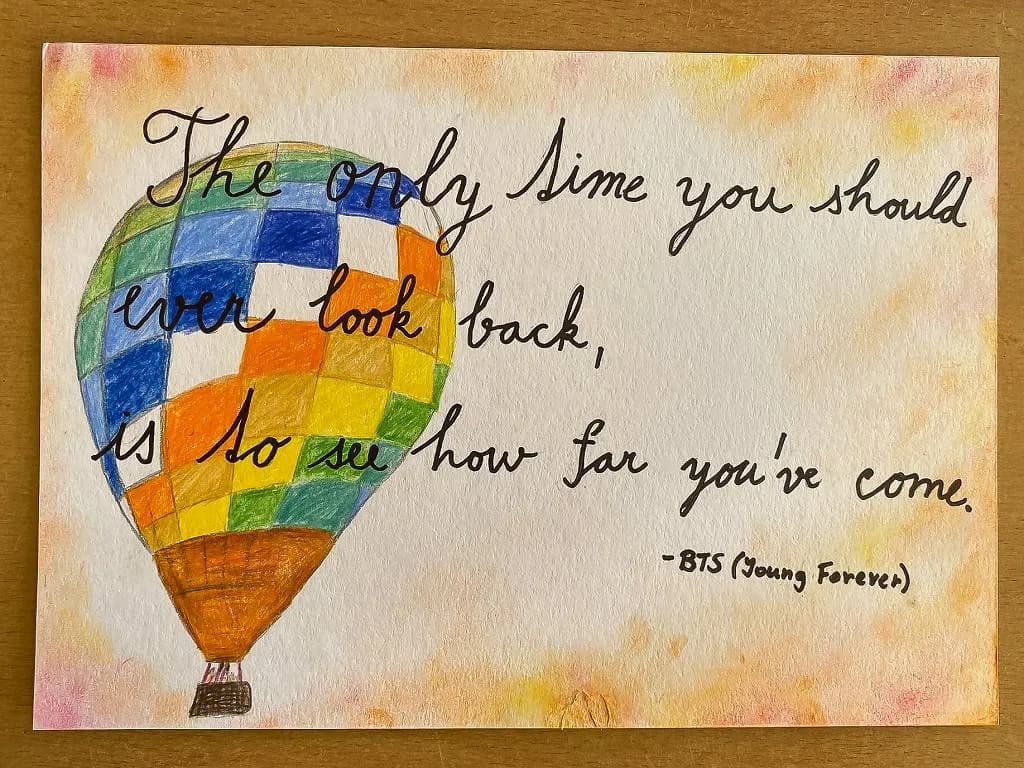 The only time you should
ever look back,
is to see how far you've come.
-BTS (Young Forever)